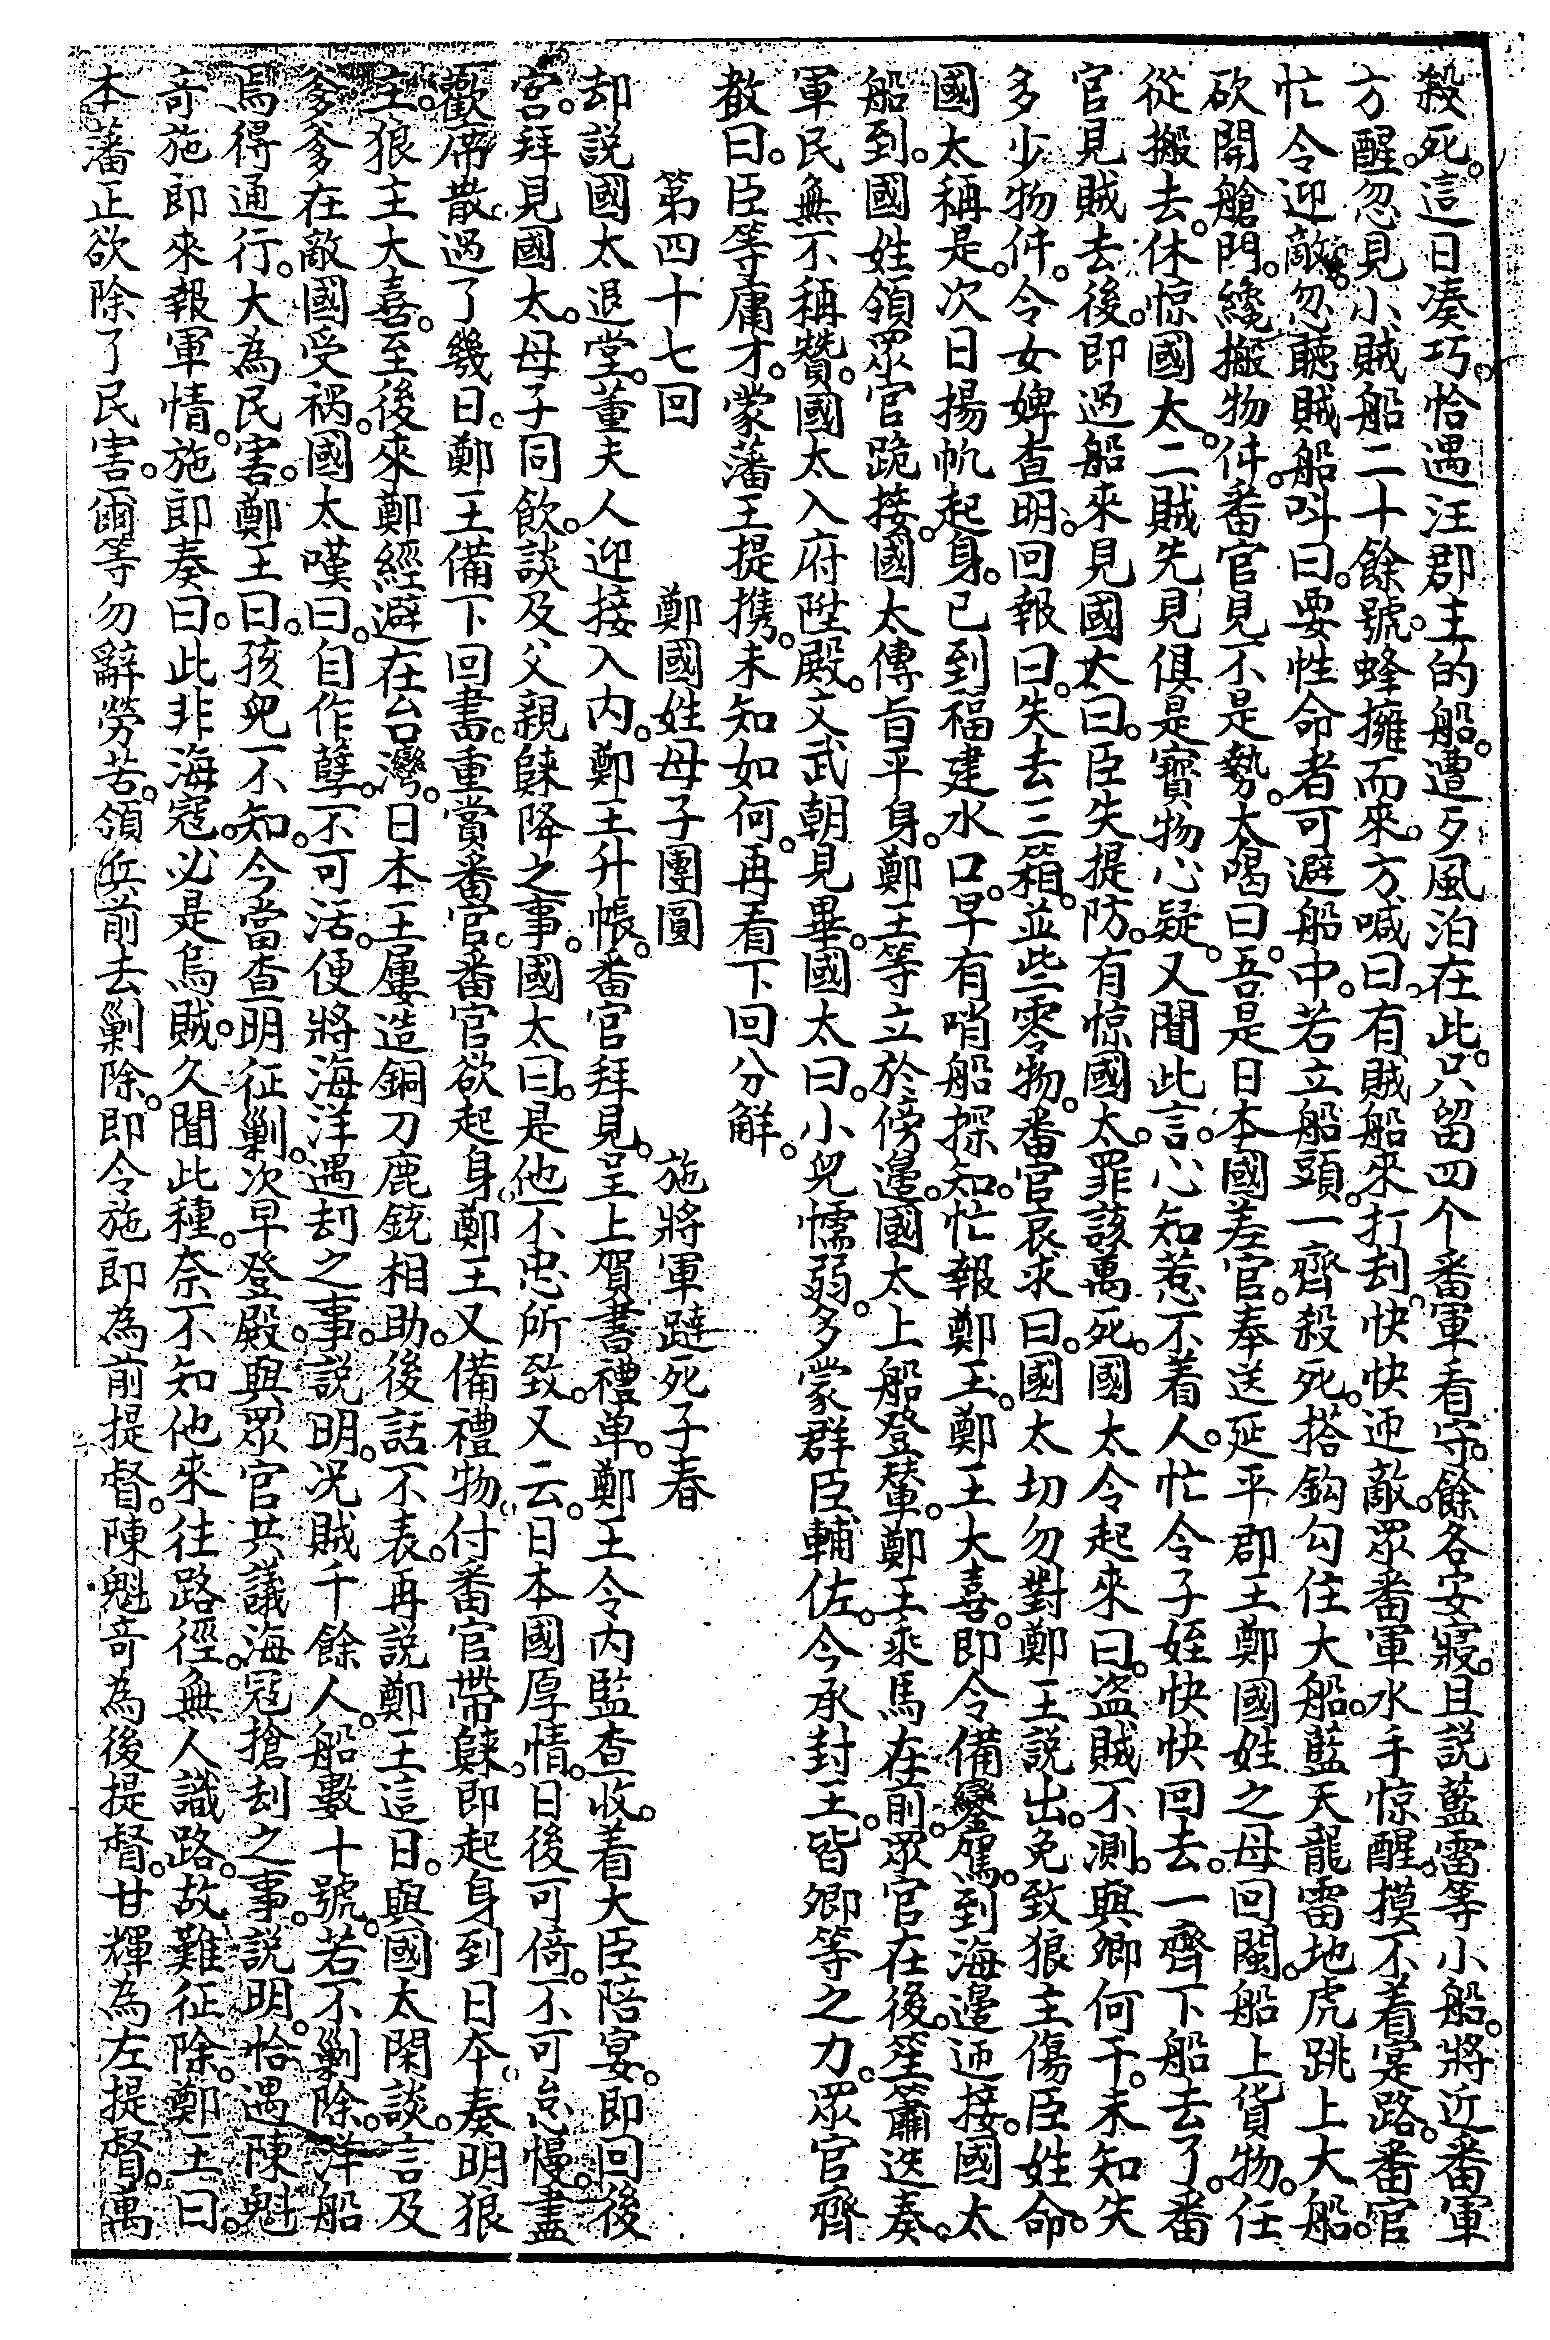 殺死。這日凑巧。恰遇汪郡主的船。遭歹風泊在此。只留四个番軍看守。餘各安寢。且説藍雷等小船。將近番軍
方醒。忽見小賊船二十餘號。蜂擁而來。方喊曰。有賊船來打刦。快快迎敵。眾番軍水手惊醒。摸不着寔路。番官
忙令迎敵。忽聽賊船呌曰。要性命者可避船中。若立船頭。一齊殺死。搭鈎勾住大船。藍天龍雷地虎跳上大船。
砍開艙門。纔搬物件。番官見不是勢。大喝曰。吾是日本國差官。奉送延平郡王鄭國姓之母回閩。船上貨物。任
從搬去。休惊國太。二賊先見俱是寶物心疑。又聞此言。心知惹不着人。忙令子姪快快回去。一齊下船去了。番
官見賊去後。即過船來見國太曰。臣失提防。有惊國太。罪該萬死。國太令起來曰。盗賊不測。與卿何干。未知失
多少物件。令女婢查明。回報曰。失去三箱。並些零物。番官哀求曰。國太切勿對鄭王説出。免致狼主傷臣姓命。
國太稱是。次日揚帆起身。已到福建水口。早有哨船探知。忙報鄭王。鄭王大喜。即令備鑾駕。到海邊迎接。國太
船到。國姓領眾官跪接。國太傳旨平身。鄭王等立於傍邊。國太上船登輦。鄭王乘馬在前。眾官在後。笙簫迭奏。
軍民無不稱贊。國太入府陞殿。文武朝見畢。國太曰。小兒懦弱。多蒙群臣輔佐。今承封王。皆卿等之力。眾官齊
教曰。臣等庸才。蒙藩王提携。未知如何。再看下回分解。
第四十七回　鄭國姓母子團圓　施將軍躂死子春
却説國太退堂。董夫人迎接入内。鄭王升帳。番官拜見。呈上賀書禮单。鄭王令内監查收。着大臣陪宴。即回後
宫。拜見國太。母子同飲。談及父親歸降之事。國太曰。是他不忠所致。又云。日本國厚情。日後可倚。不可怠慢。盡
歡席散。過了幾日。鄭王備下回書。重賞番官。番官欲起身。鄭王又備禮物。付番官帶歸。即起身到日本。奏明狼
主。狼主大喜。至後來鄭經避在台灣。日本王屢造銅刀鹿銃相助。後話不表。再説鄭王這日。與國太閑談。言及
爹爹在敵國受禍。國太嘆曰。自作孽。不可活。便將海洋遇刦之事。説明。况賊千餘人。船數十號。若不剿除。洋船
焉得通行。大為民害。鄭王曰。孩兒不知。今當查明征剿。次早登殿。與眾官共議海寇搶刦之事。説明。恰遇陳魁
奇施郎來報軍情。施郎奏曰。此非海寇。必是烏賊。久聞此種。奈不知他來往路徑。無人識路。故難征除。鄭王曰。
本藩正欲除了民害。爾等勿辭勞苦。領兵前去剿除。即令施郎為前提督。陳魁奇為後提督。甘輝為左提督。萬